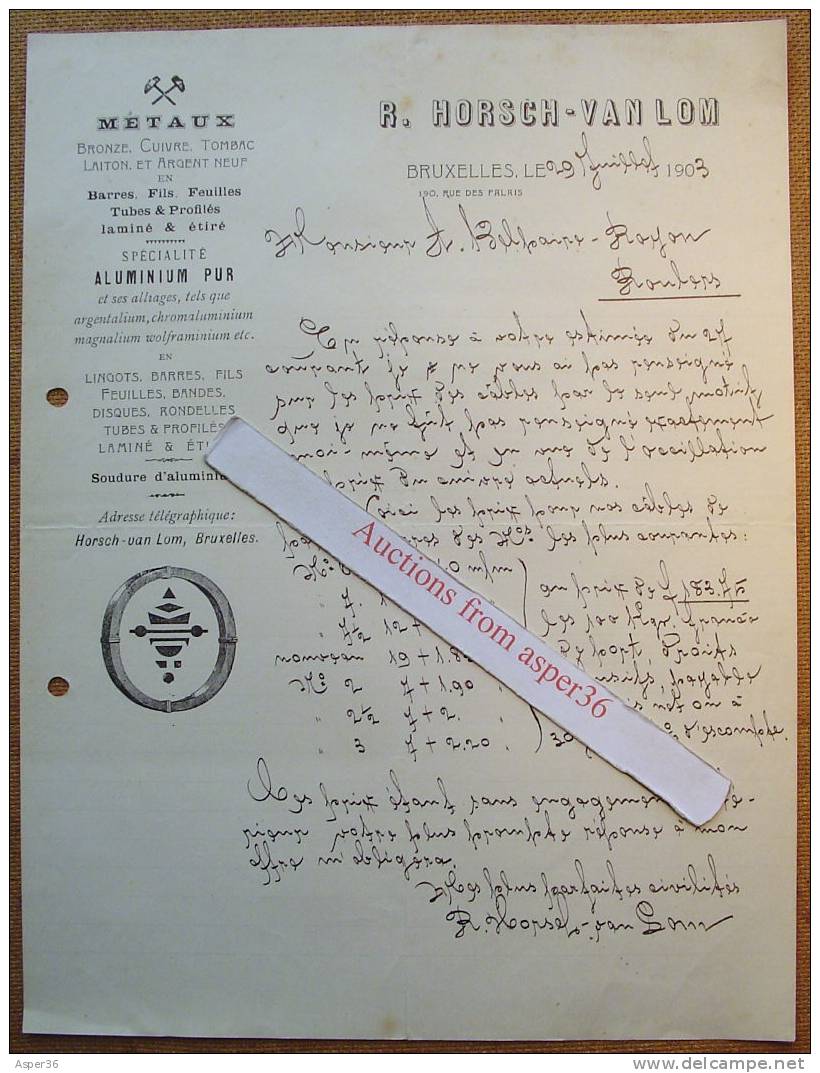 MÉTAUX
BRONZE, CUIVRE, TOMBAC
LAITON, ET ARGENT NEUF
EN
Barres, Fils, Feuilles
Tubes & Profilés
laminé & étiré
SPÉCIALITÉ
ALUMINIUM PUR
et ses alliages, tels que
argentalium, chromaluminium
magnalium wolframinium etc.
EN
LINGOTS, BARRES, FILS
FEUILLES, BANDES,
DISQUES, RONDELLES
TUBES & PROFILÉS
LAMINÉ & ÉTI
Soudure d'aluminiu
Adresse télégraphique:
Horsch-van Lom, Bruxelles.
R. HORSCH-VAN LOM
BRUXELLES, LE 29 Juillet 1903
190, RUE DES PALAIS
Monsieur A. Belpaire-Royon
Roulers
En réponse à votre estimée du 27
courant je ne vous ai pas renseigné
sur les prix des câbles par le seul motif,
que je ne fût pas renseigné exactement
moi-même et en vue de l'oscillation
prix du cuivre actuels.
Voici les prix pour nos câbles de
des Nos les plus courantes:
No 0 mm au prix de 183.75
" 7. 1 les 100 kgr. franco
" 7½ 12 + de port, droits
nouveau 19 + 1.8 payable
No 2 7 + 1.90 " net ou à
" 2½ 7 + 2. " 30 d'escompte.
" 3 7 + 2.20 "
Ces prix étant sans engagement
rieur votre plus prompte réponse à mon
offre m'obligera.
Mes plus parfaites civilités
R. Horsch-van Lom
Auctions from asper36
Asper36
www.delcampe.net